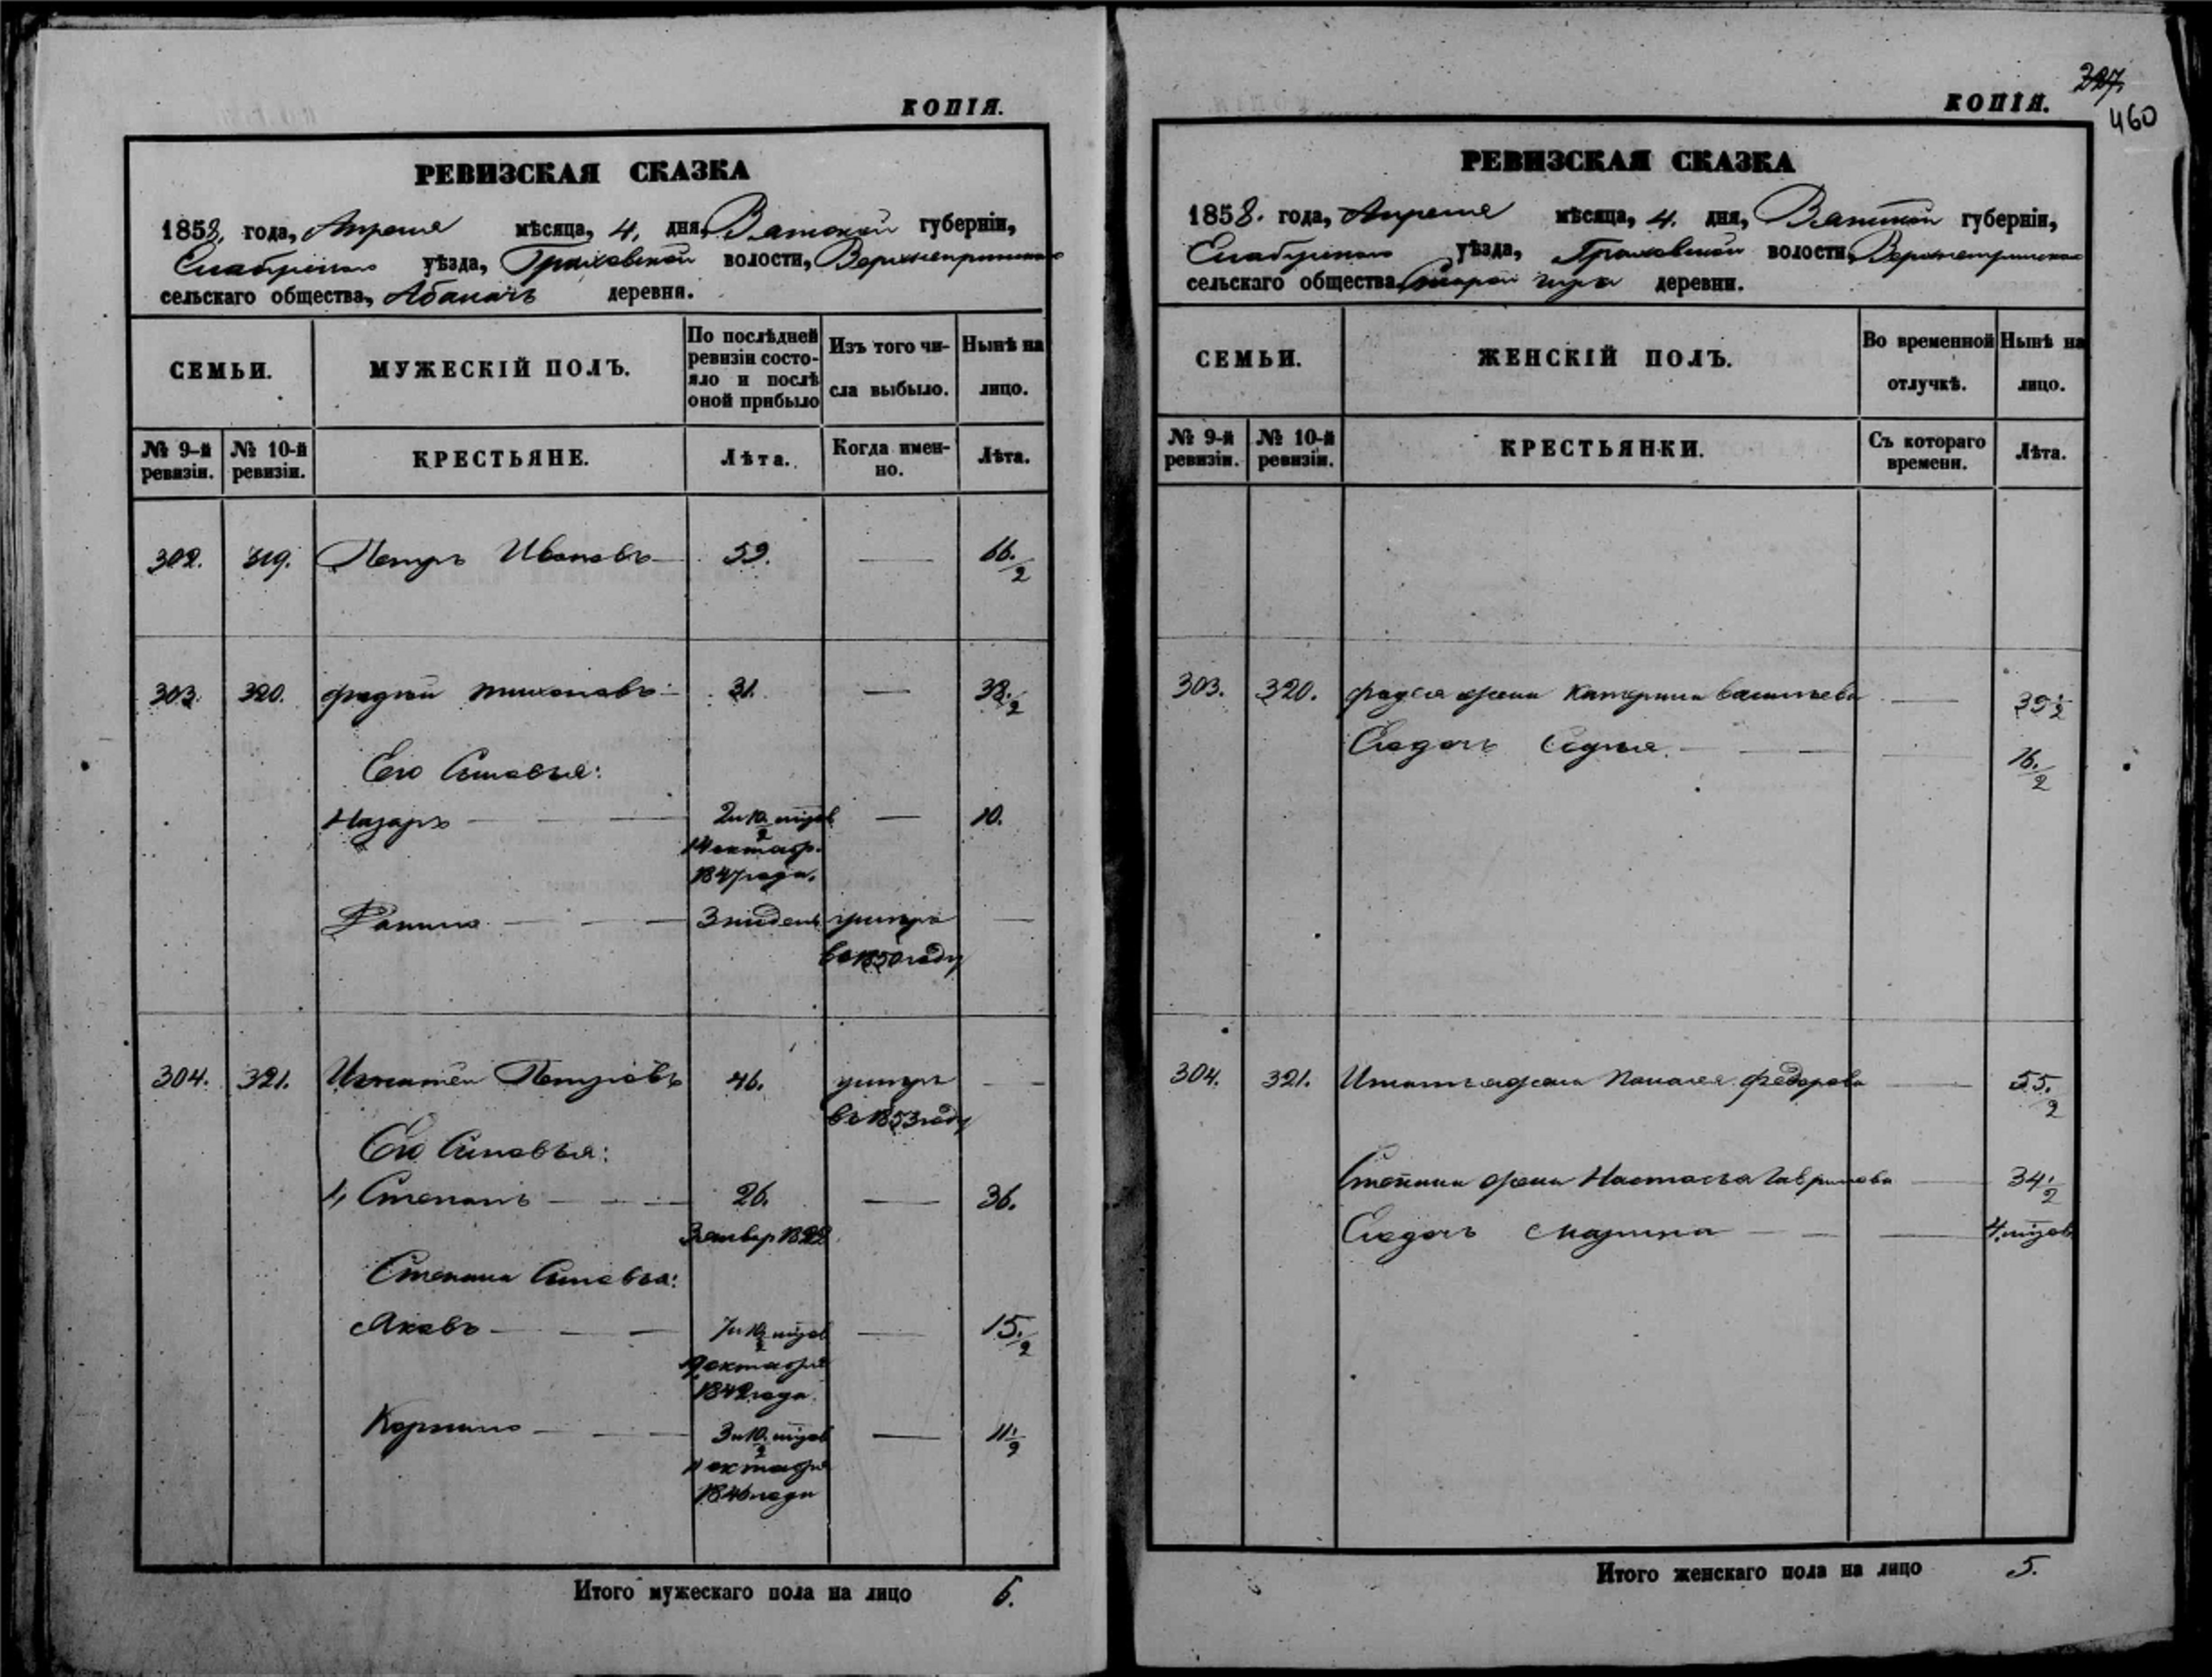 КОПІЯ.
РЕВИЗСКАЯ СКАЗКА
1858. года, Апреля мѣсяца, 4, дня, Вятской губерніи,
Елабугскаго уѣзда, Граховской волости,
сельскаго общества, деревни.
СЕМЬИ.
МУЖЕСКІЙ ПОЛЪ.
По послѣдней ревизіи состо-
яло и послѣ оной прибыло
Изъ того чи-
сла выбыло.
Нынѣ на
лицо.
№ 9-й
ревизіи.
№ 10-й
ревизіи.
КРЕСТЬЯНЕ.
Лѣта.
Когда имен-
но.
Лѣта.
302. 319. Петръ Ивановъ 59. — 66 1/2
303. 320. Фадей Тихоновъ 31. — 38 1/2
Его Сыновья:
Назаръ 2 и 10 1/2 — 10.
14 октябр.
1847 года.
3 умеръ —
въ 1850 году
304. 321. Игнатей Петровъ 46. умеръ —
въ 1853 году
Его Сыновья:
1, Степанъ 26. — 36.
Степана Сыновья:
Яковъ 7 и 10 1/2 — 15 1/2
октября
1842 года.
Корнило 3 и 10 1/2 — 11 1/2
октября
1846 года
Итого мужескаго пола на лицо 6.
327.
460
КОПІЯ.
РЕВИЗСКАЯ СКАЗКА
1858. года, Апреля мѣсяца, 4. дня, Вятской губерніи,
Елабугскаго уѣзда, Граховской волости,
сельскаго общества, Старой деревни.
СЕМЬИ.
ЖЕНСКІЙ ПОЛЪ.
Во временной
отлучкѣ.
Нынѣ на
лицо.
№ 9-й
ревизіи.
№ 10-й
ревизіи.
КРЕСТЬЯНКИ.
Съ котораго
времени.
Лѣта.
303. 320. Фадея жена Катерина Васильева — 39 1/2
Ея дочь — 16 1/2
304. 321. Игнатья жена Федорова — 55 1/2
Степана жена Настасья Гаврилова — 34 1/2
Ея дочь Марина — 4
Итого женскаго пола на лицо 5.